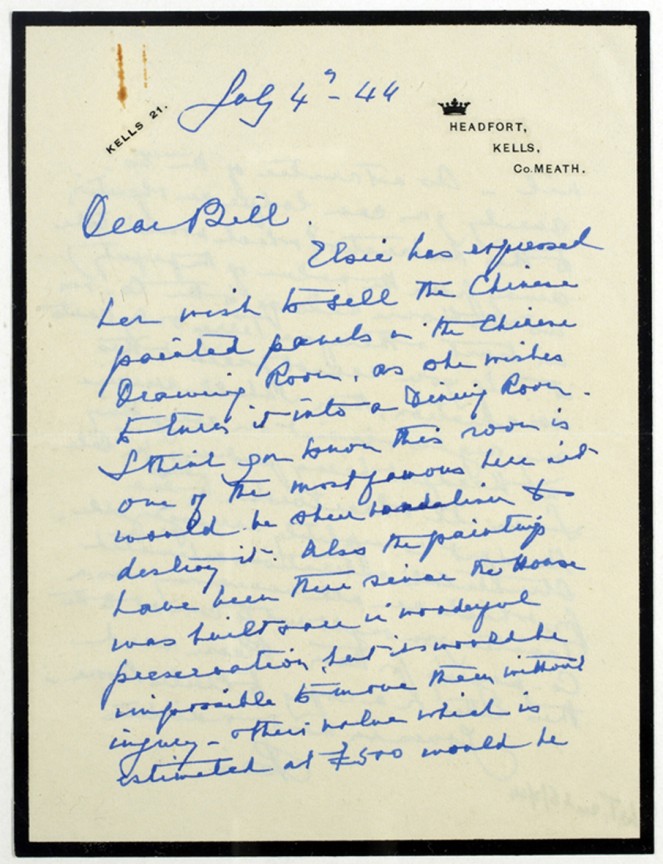 KELLS 21.
July 4th - 44
HEADFORT,
KELLS,
Co. MEATH.
Dear Bill.
Elsie has expressed
her wish to sell the Chinese
painted panels in the Chinese
Drawing Room, as she wishes
to turn it into a Dining Room.
I think you know this room is
one of the most famous here it
would be sheer vandalism to
destroy it. Also the paintings
have been there since the House
was built & are in wonderful
preservation, but it would be
impossible to move them without
injury - & their value which is
estimated at £500 would be